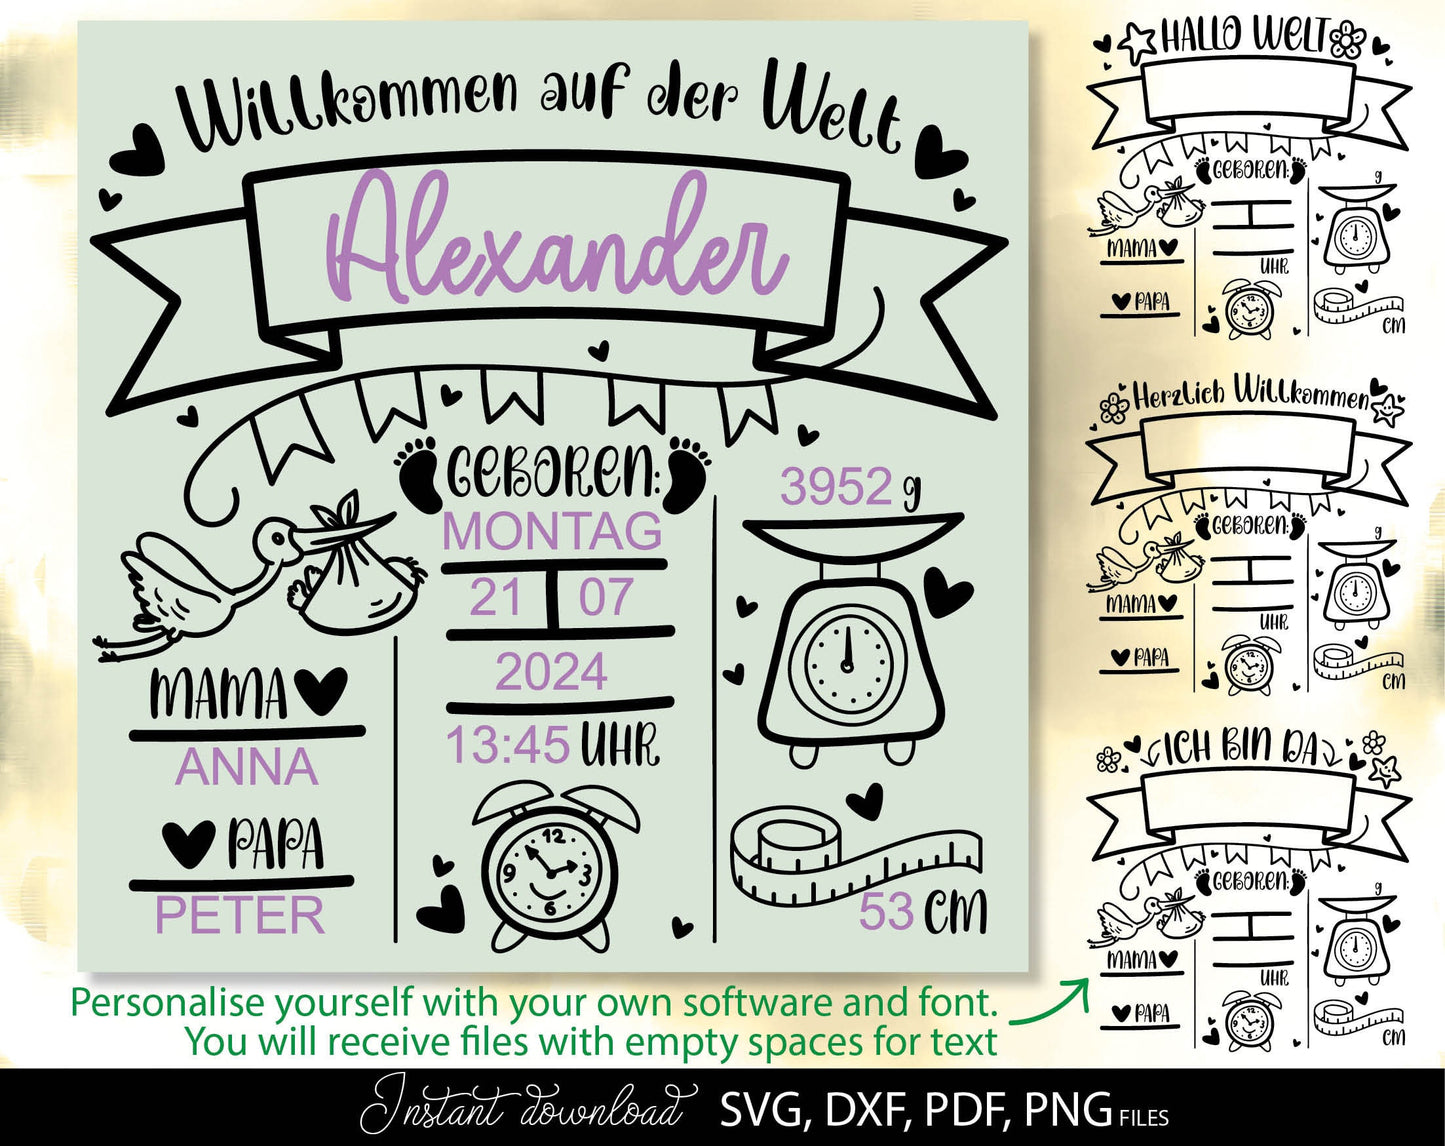 Willkommen auf der Welt
Alexander
GEBOREN:
MONTAG
21 07
2024
13:45 UHR
12
3
6
9
MAMA
ANNA
PAPA
PETER
3952 g
53 CM
HALLO WELT
GEBOREN:
g
MAMA
UHR
PAPA
12
3
6
9
CM
Herzlich Willkommen
GEBOREN:
g
MAMA
UHR
PAPA
12
3
6
9
CM
ICH BIN DA
GEBOREN:
g
MAMA
UHR
PAPA
12
3
6
9
CM
Personalise yourself with your own software and font.
You will receive files with empty spaces for text
Instant download SVG, DXF, PDF, PNG FILES